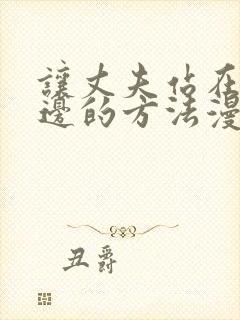 讓丈夫佔在
邊的方法漫
丑爵